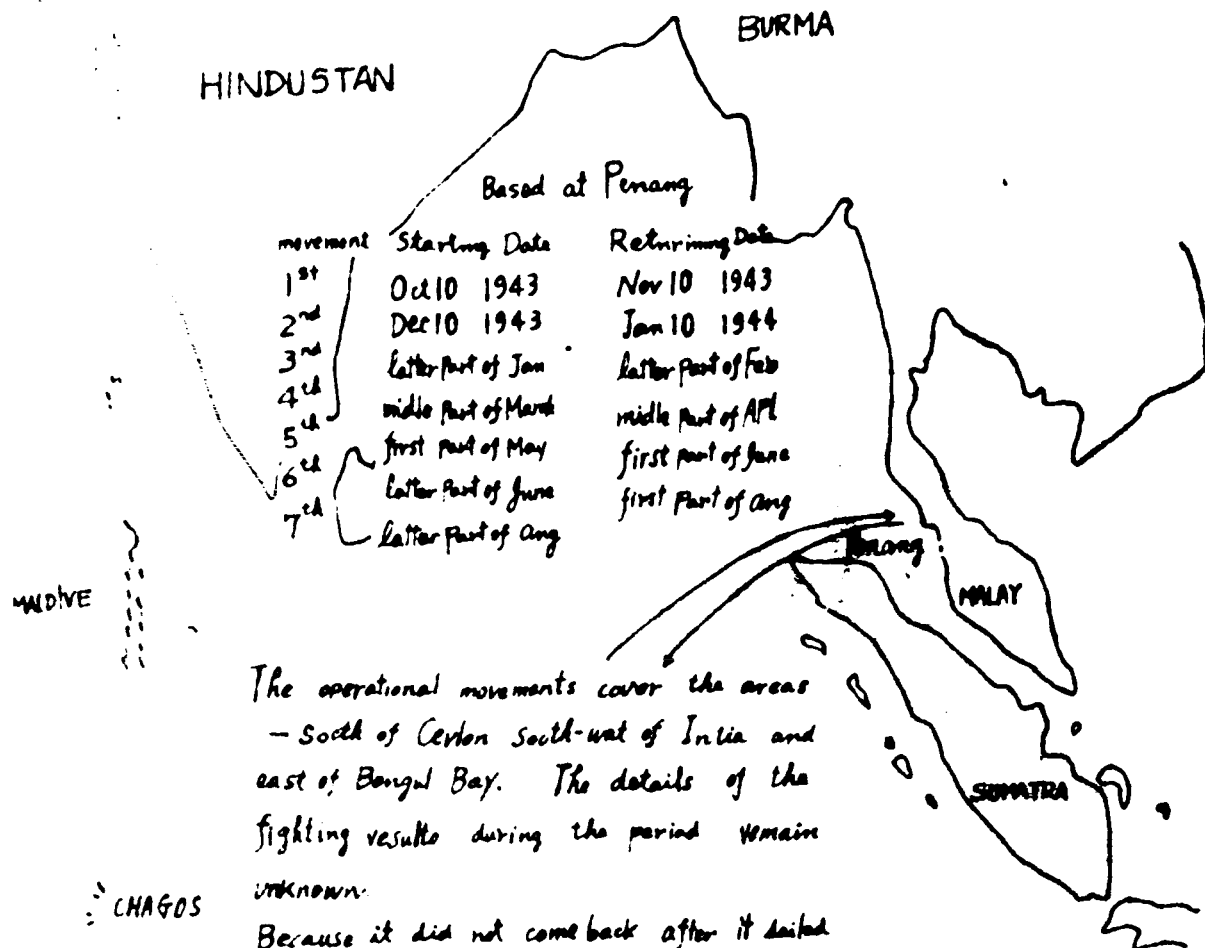 BURMA
HINDUSTAN
Based at Penang
movement Starting Date Retnrinng Date
1st Oct 10 1943 Nov 10 1943
2nd Dec 10 1943 Jan 10 1944
3rd latter Part of Jan latter Part of Feb
4th midle Part of March midle Part of APl
5th first Part of May first Part of June
6th latter Part of June first Part of Ang
7th latter Part of Ang
Penang
MALAY
MALDIVE
SUMATRA
The operational movements cover the areas
— South of Ceylon South-west of India and
east of Bengal Bay. The details of the
fighting results during the period remain
unknown.
CHAGOS
Because it did not come back after it sailed